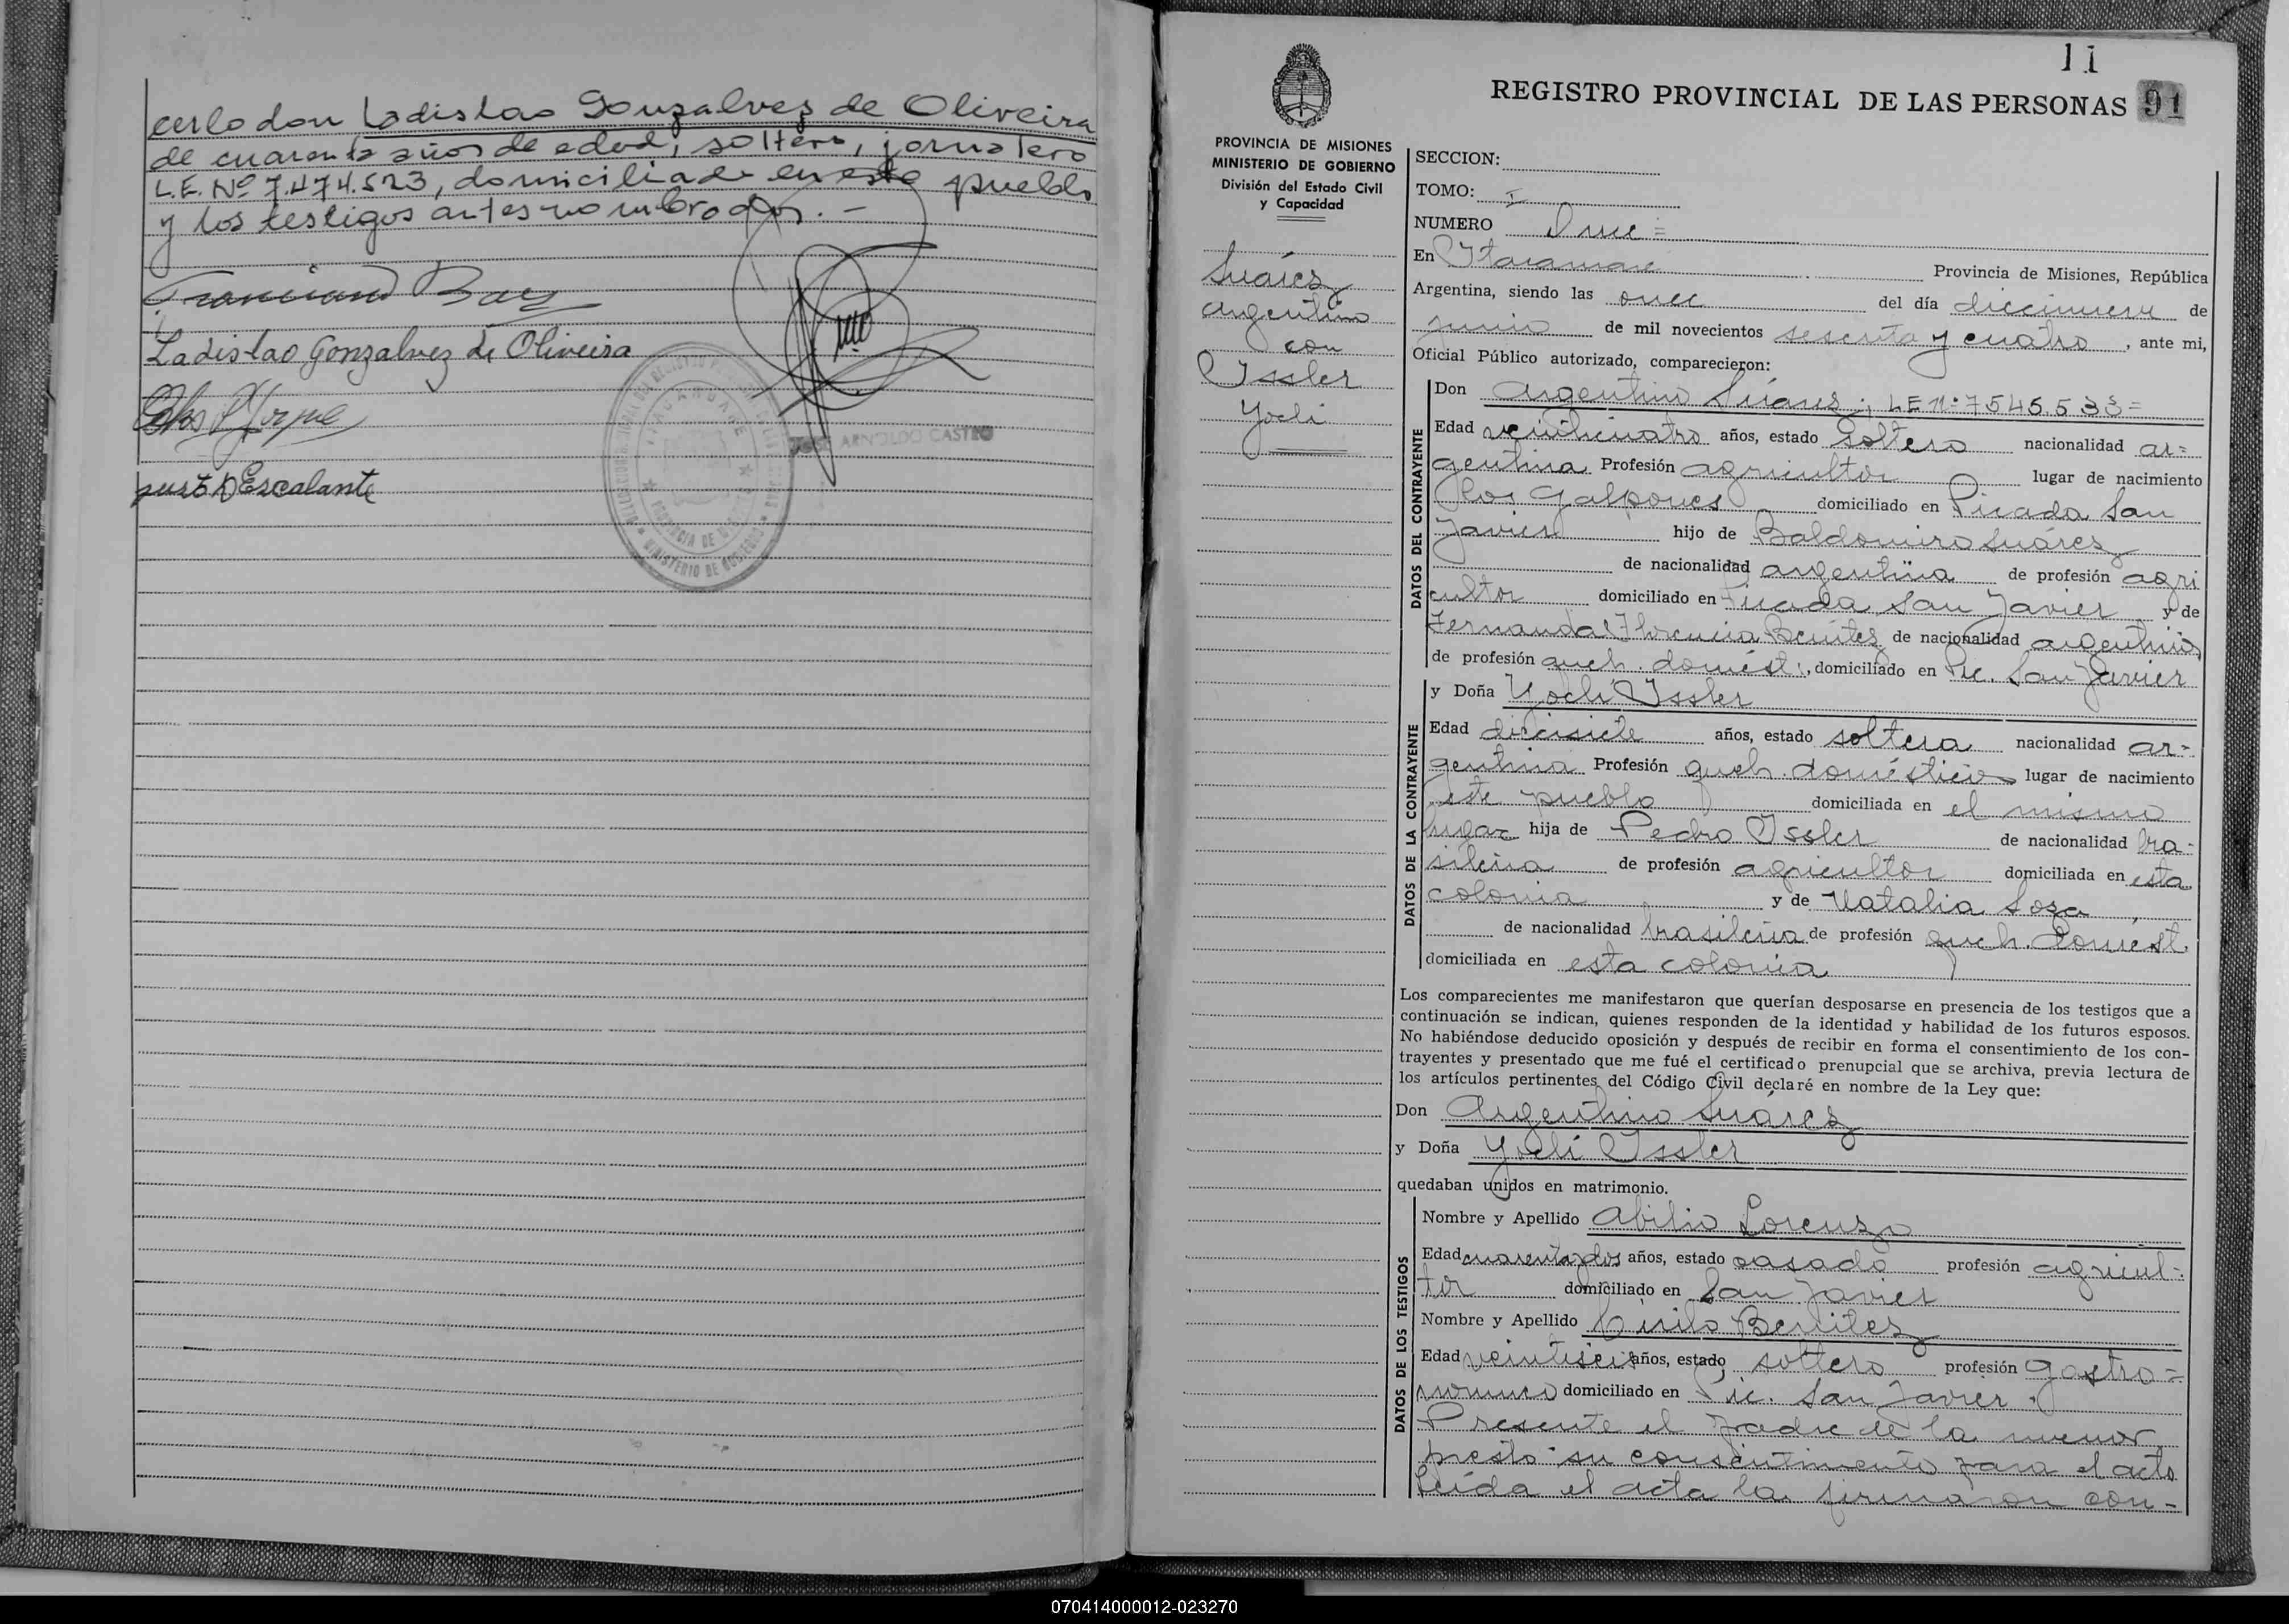 cerlo don Ladislao Gonzalvez de Oliveira
de cuarenta años de edad, soltero, jornalero
L.E. Nº 7.474.523, domiciliado en este pueblo
y los testigos antes nombrados. —
Ladislao Gonzalvez de Oliveira
Escalante
JOSE ARNOLDO CASTRO
11
REGISTRO PROVINCIAL DE LAS PERSONAS 91
PROVINCIA DE MISIONES
MINISTERIO DE GOBIERNO
División del Estado Civil
y Capacidad
Suárez
Argentino
con
Issler
Yoeli
SECCION:
TOMO: I
NUMERO Once =
En Itacaruaré Provincia de Misiones, República
Argentina, siendo las once del día diecinueve de
junio de mil novecientos sesenta y cuatro, ante mi,
Oficial Público autorizado, comparecieron:
DATOS DEL CONTRAYENTE
Don Argentino Suárez; LE Nº 7545.533=
Edad veinticuatro años, estado soltero nacionalidad ar=
gentina Profesión agricultor lugar de nacimiento
los Galpones domiciliado en Picada San
Javier hijo de Baldomiro Suárez
de nacionalidad argentina de profesión agri
cultor domiciliado en Picada San Javier y de
Fernanda Florencia Benítez de nacionalidad argentina
de profesión queh. domést., domiciliado en Pic. San Javier
DATOS DE LA CONTRAYENTE
y Doña Yoeli Issler
Edad diecisiete años, estado soltera nacionalidad ar-
gentina Profesión queh. domésticos lugar de nacimiento
este pueblo domiciliada en el mismo
lugar hija de Pedro Issler de nacionalidad bra-
sileña de profesión agricultor domiciliada en esta
colonia y de Natalia Soza,
de nacionalidad brasileña de profesión queh. Domést.
domiciliada en esta colonia
Los comparecientes me manifestaron que querían desposarse en presencia de los testigos que a
continuación se indican, quienes responden de la identidad y habilidad de los futuros esposos.
No habiéndose deducido oposición y después de recibir en forma el consentimiento de los con-
trayentes y presentado que me fué el certificado prenupcial que se archiva, previa lectura de
los artículos pertinentes del Código Civil declaré en nombre de la Ley que:
Don Argentino Suárez
y Doña Yoelí Issler
quedaban unidos en matrimonio.
DATOS DE LOS TESTIGOS
Nombre y Apellido Abilio Lorenzo
Edad cuarentidos años, estado casado profesión agricul-
tor domiciliado en San Javier
Nombre y Apellido Cirilo Benítez
Edad veintiseis años, estado soltero profesión gastro=
nómico domiciliado en Pic. San Javier.
Presente el padre de la menor
prestó su consentimiento para el acto
Leída el acta la firmaron con-
070414000012-023270